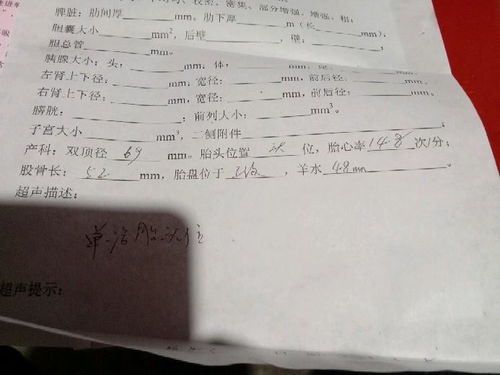 部分增强, 增强, 粗;
脾脏: 肋间厚____mm, 肋下厚____m (长____mm);
胆囊大小____mm², 后壁____, 壁:____;
胆总管____mm。
胰腺大小: 头:____mm, 体,____mm,
左肾上下径:____mm, 宽径:____mm, 前后径:____mm。
右肾上下径:____mm, 宽径:____mm, 前后径:____mm。
膀胱:____; 前列大小:____mm³。
子宫大小____mm³, 二侧附件____;
产科: 双顶径 69 mm。胎头位置____位, 胎心率 148 次/分;
股骨长: 52 mm, 胎盘位于____, 羊水 48mm。
超声描述:
单活胎头位
超声提示: